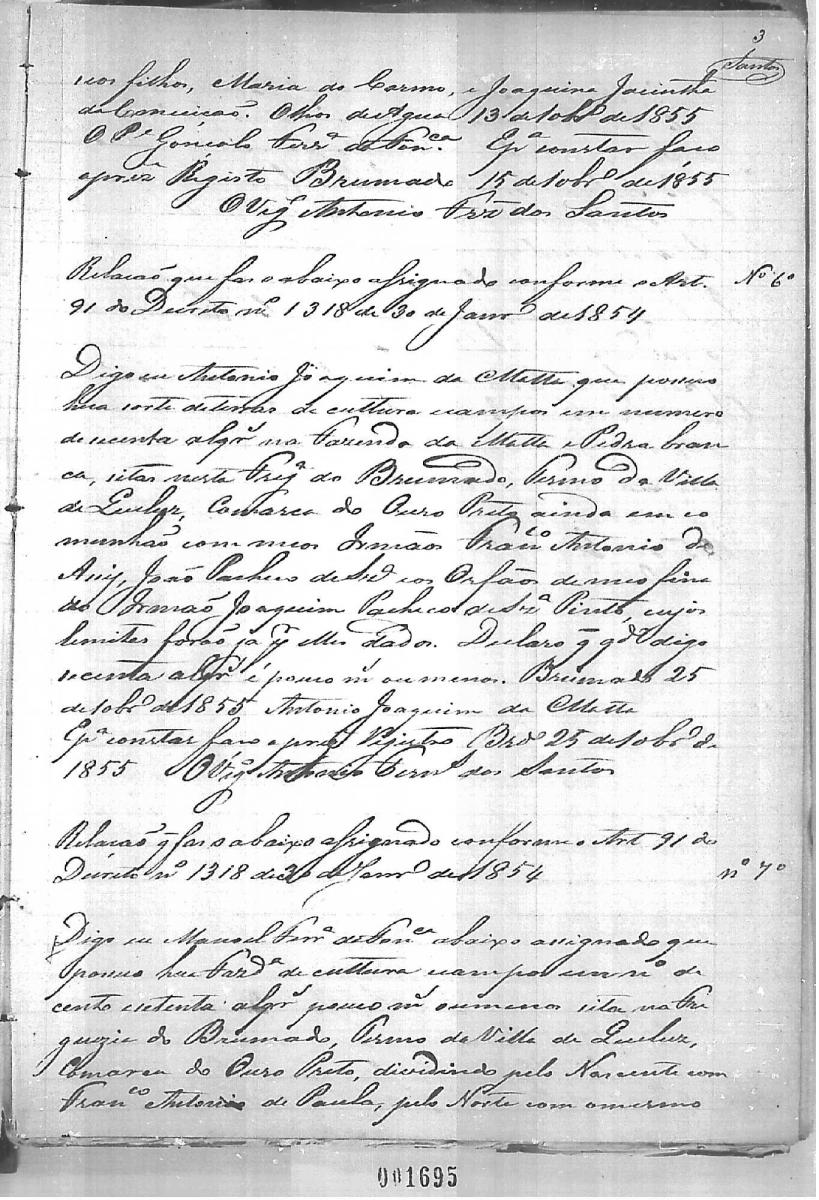 3
Santos
seos filhos, Maria do Carmo, e Joaquina Jacintha
da Conceição. Olhos de Agua 13 de 10br.º de 1855
O P.e Gonçalo Ferr.ª da Fon.ca Ep.ª constar faço
o prez.e Registo Brumado 15 de 10br.º de 1855
O Vig.º Antonio Frz dos Santos
Relação que faz o abaixo assignado conforme o Art. Nº 6º
91 do Decreto nº 1318 de 30 de Janr.º de 1854
Digo eu Antonio Joaquim da Matta que possuo
hua sorte de terras de cultura e campos em numero
de secenta alqr.s na Fazenda da Matta e Pedra bran
ca, sitas nesta Freg.ª do Brumado, Termo da Villa
de Queluz, Comarca do Ouro Preto ainda em co
munhão com meos Irmãos Fran.co Antonio de
Assiz, João Pacheco de e os Orfãos de meo fina
do Irmão Joaquim Pacheco de Pinto, cujos
lemites forão já p.r elles dados. Declaro q q.do digo
secenta alqr.s é pouco m.s ou menos. Brumado 25
de 10br.º de 1855 Antonio Joaquim da Matta
Ep.ª constar faço o prez.e Rejistro Brd.º 25 de 10br.º de
1855 O Vig.º Antonio Fern.s dos Santos
Relação q faz o abaixo assignado conforme o Art 91 do
Decreto nº 1318 de 30 de Janr.º de 1854 nº 7º
Digo eu Manoel Ferr.ª da Fon.ca abaixo assignado que
possuo hua Fazd.ª de cultura e campos em nº de
cento e setenta alqr.s pouco m.s ou menos sita na Fre
guezia do Brumado, Termo da Villa de Queluz,
Comarca do Ouro Preto, dividindo pelo Nascente com
Fran.co Antonio de Paula, pelo Norte com o mesmo
001695